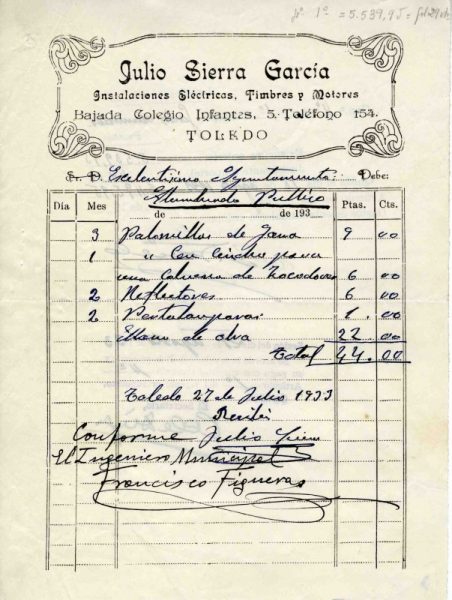 Nº 1º = 5.539,95 =
Julio Sierra García
Instalaciones Eléctricas, Timbres y Motores
Bajada Colegio Infantes, 5. Teléfono 154.
TOLEDO
Sr. D. Excelentísimo Ayuntamiento Debe:
Día Mes Alumbrado Publico Ptas. Cts.
de de 193
3 Palomillas de 9 00
1 " Con cincho para
una de Zocodover 6 00
2 Reflectores 6 00
2 Portalamparas 1. 00
Mano de obra 22 00
Total 44.00
Toledo 27 de Julio 1933
Recibí
Conforme Julio Sierra
El Ingeniero Municipal
Francisco Figueras